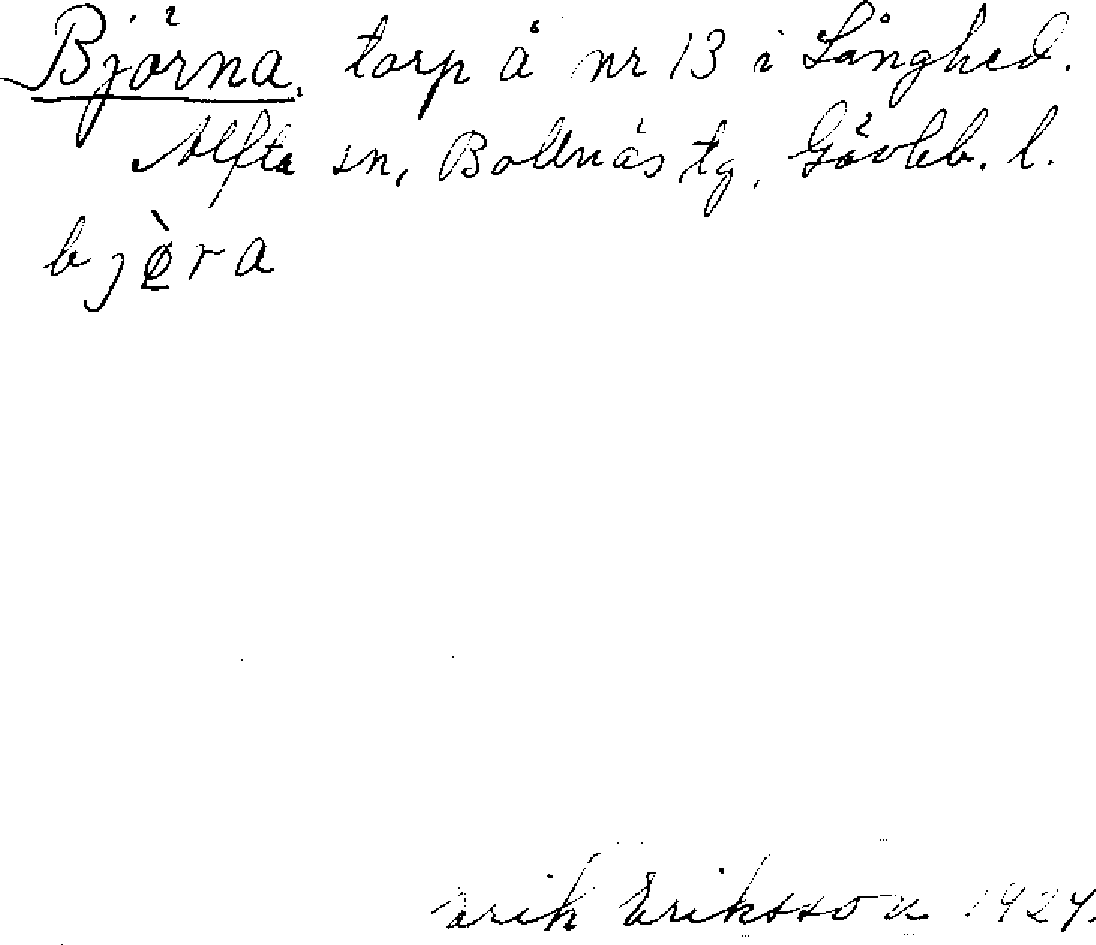 Björna, torp å nr 13 i Långhed.
Alfta sn, Bollnäs tg, Gävleb. l.
bjø̀ra
Erik Eriksson 1924.